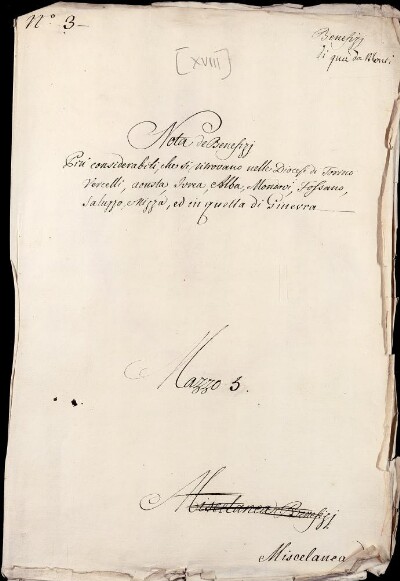 N.º 3
Benefizj
di quà da Monti
[XVIII]
Nota de Benefizj
Più considerabili, che si ritrovano nelle Diocesi di Torino
Vercelli, Aousta, Ivrea, Alba, Mondovì, Fossano,
Saluzzo, Nizza, ed in quella di Ginevra
Mazzo 3.
Miscelanea Benefizj
Miscelanea